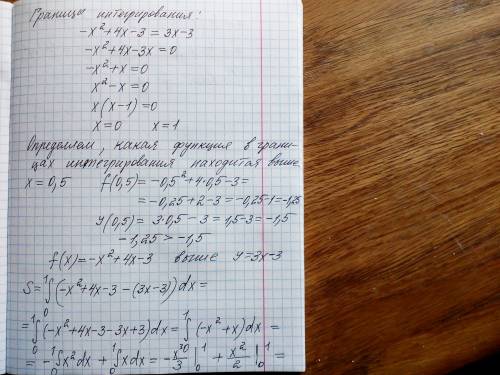 Границы интегрирования:
-x²+4x-3 = 3x-3
-x²+4x-3x=0
-x²+x=0
x²-x=0
x(x-1)=0
x=0 x=1
Определяем, какая функция в грани-
цах интегрирования находится выше
x=0,5 f(0,5)= -0,5²+4·0,5-3=
= -0,25+2-3 = -0,25-1=-1,25
y(0,5)= 3·0,5-3=1,5-3=-1,5
-1,25 > -1,5
f(x)=-x²+4x-3 выше y=3x-3
S=∫₀¹(-x²+4x-3-(3x-3))dx=
=∫₀¹(-x²+4x-3-3x+3)dx=∫₀¹(-x²+x)dx=
= -∫₀¹x²dx + ∫₀¹xdx = -x³/3|₀¹ + x²/2|₀¹ =